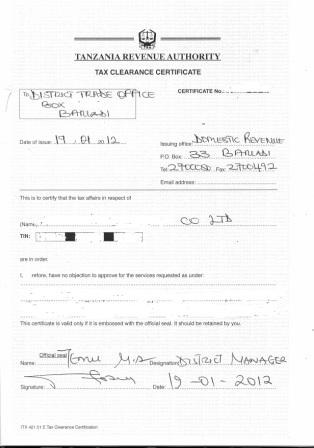 TANZANIA REVENUE AUTHORITY
TAX CLEARANCE CERTIFICATE
To DISTRICT TRADE OFFICE
BOX
BARIADI
CERTIFICATE No.
Date of issue: 19 . 01 20 12
Issuing office: DOMESTIC REVENUE
P.O. Box: 33 BARIADI
Tel: 2700050 Fax: 2700492
Email address:
This is to certify that the tax affairs in respect of
(Name) CO LTD
TIN:
are in order.
I, refore, have no objection to approve for the services requested as under:
This certificate is valid only if it is embossed with the official seal. It should be retained by you.
Official seal
Name: Temu M.S Designation: DISTRICT MANAGER
Signature: Date: 19-01-2012
ITX 421.01.E Tax Clearance Certification